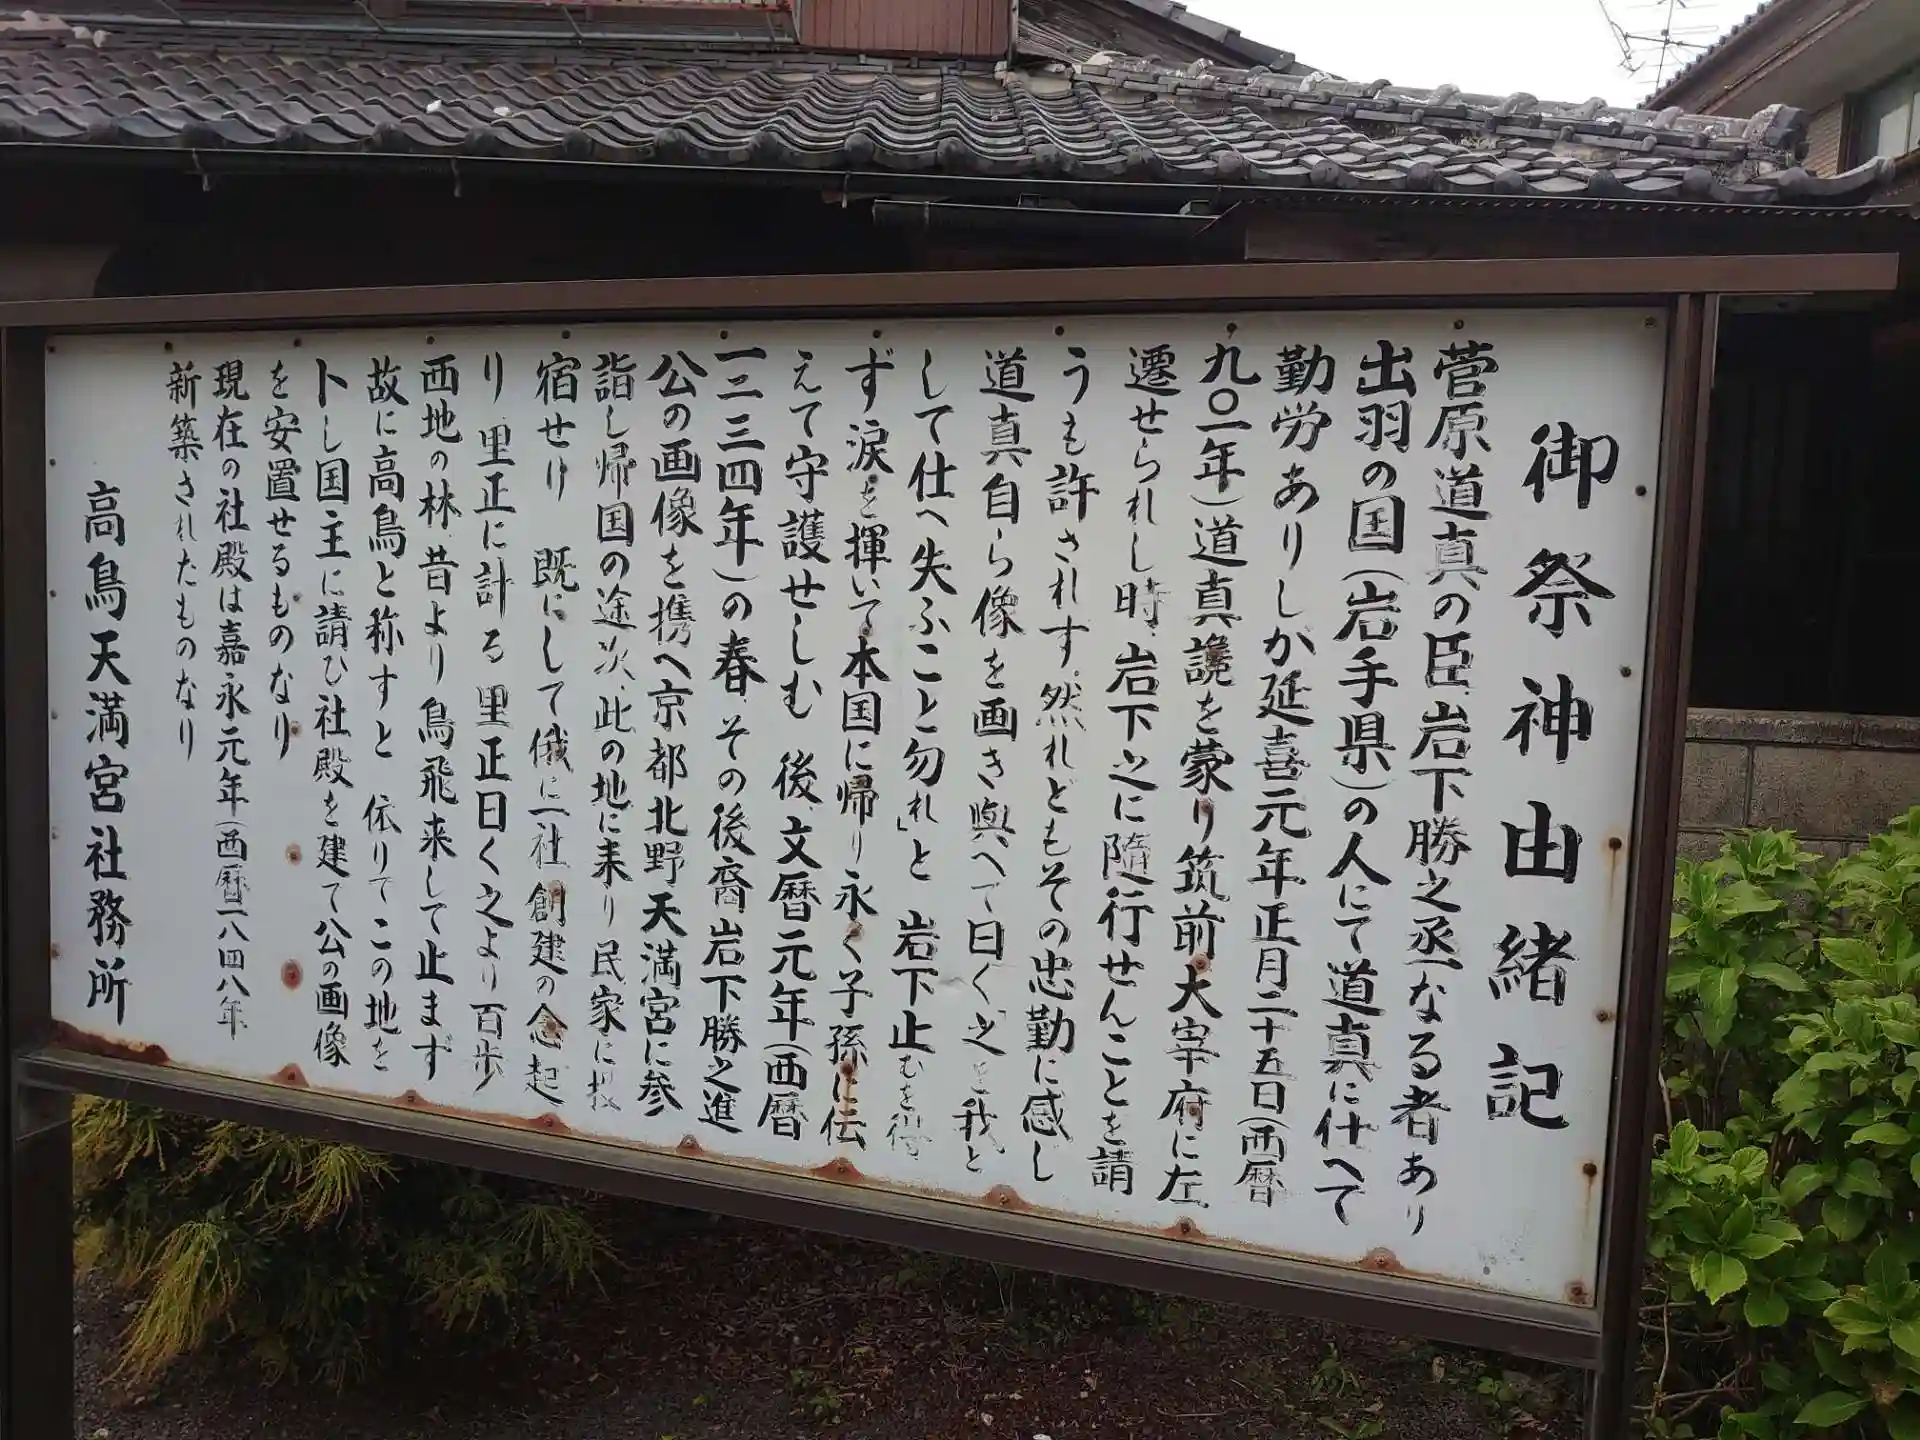 御祭神由緒記
菅原道真の臣、岩下勝之丞なる者あり
出羽の国(岩手県)の人にて道真に仕へて
勤労ありしか延喜元年正月二十五日(西暦
九〇一年)道真讒を蒙り筑前大宰府に左
遷せられし時、岩下之に随行せんことを請
うも許されす。然れどもその忠勤に感し
道真自ら像を画き與へて曰く「之を我と
して仕へ失ふこと勿れ」と 岩下止むを得
ず涙を揮いて本国に帰り永く子孫に伝
えて守護せしむ 後、文暦元年(西暦
一二三四年)の春、その後裔岩下勝之進
公の画像を携へ京都北野天満宮に参
詣し帰国の途次、此の地に来り民家に投
宿せり 既にして俄に一社創建の念起
り里正に計る 里正曰く之より百歩
西地の林、昔より鳥飛来して止まず
故に高鳥と称すと 依りてこの地を
卜し国主に請ひ社殿を建て公の画像
を安置せるものなり
現在の社殿は嘉永元年(西暦一八四八年
新築されたものなり
高鳥天満宮社務所